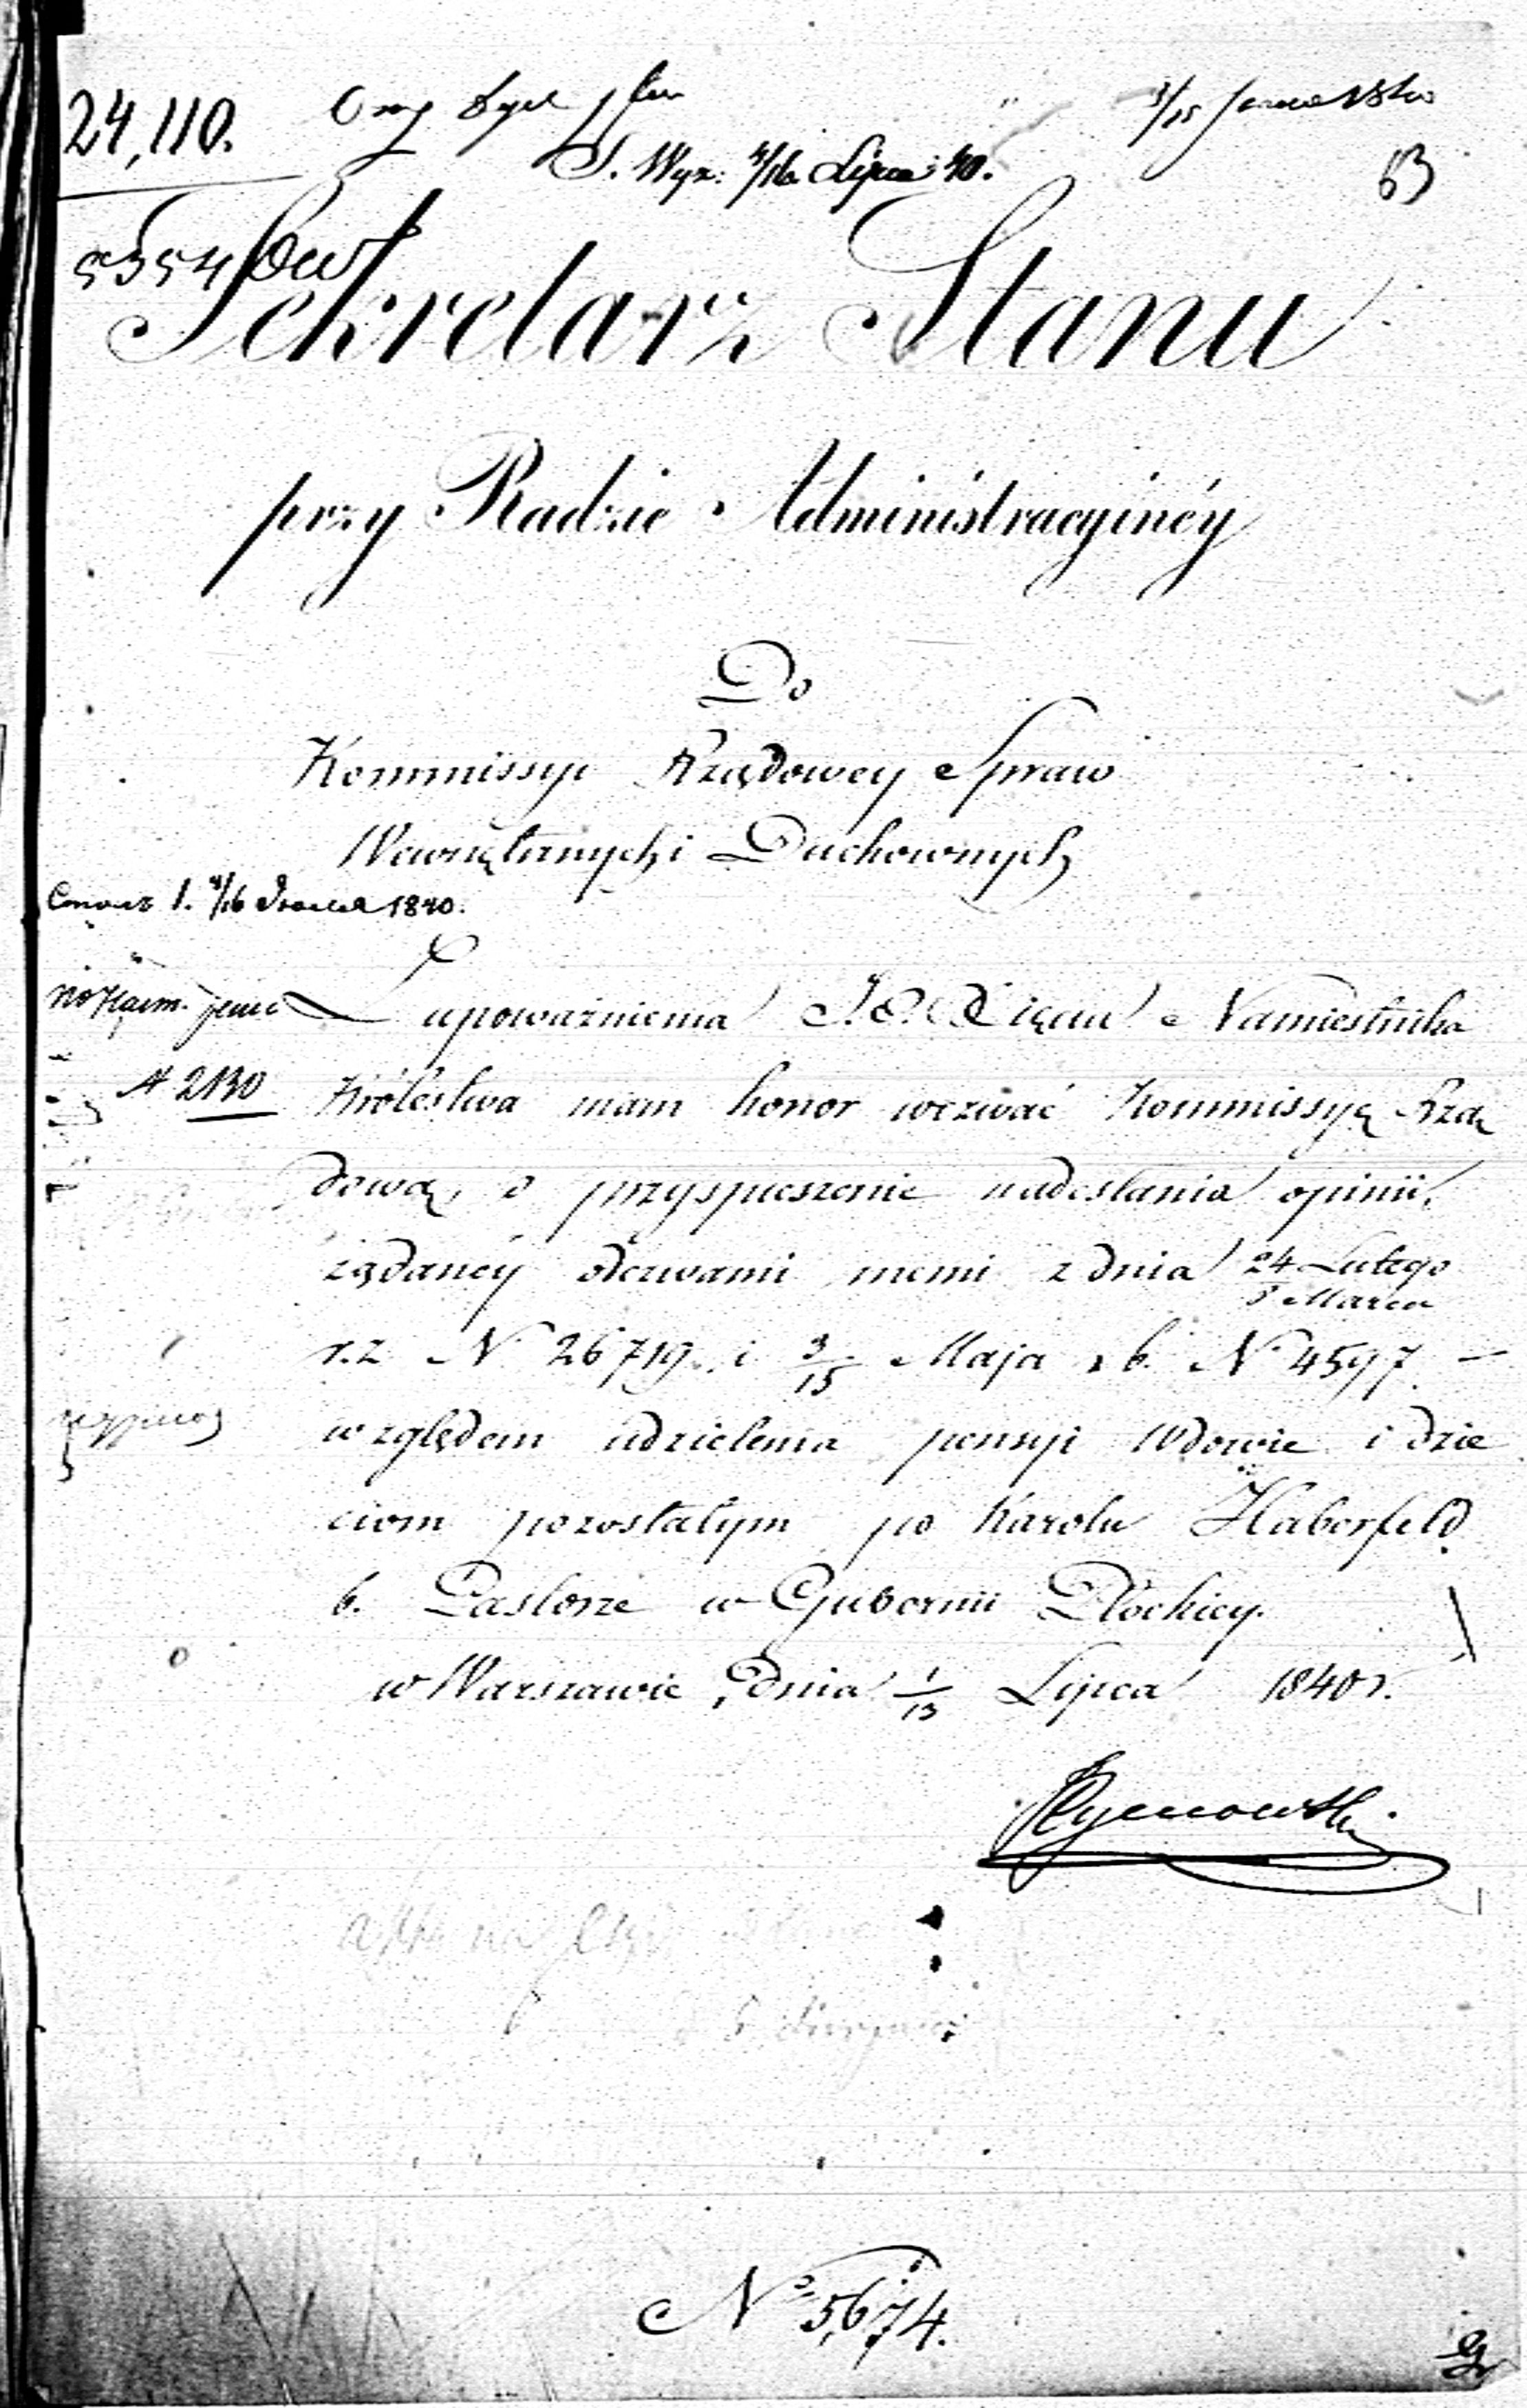 24,110.
S. Wyz: 4/16 Lipca 40.
63
5354
Sekretarz Stanu
przy Radzie Administracyinéy
Do
Kommissyi Rządowey Spraw
Wewnętrznych i Duchownych
1. 4/16 1840.
Z upoważnienia J. O. Xięcia Namiestnika
N 2130
Królestwa mam honor wezwać Kommissyą Rzą
dową, o przyspieszenie nadesłania opinii,
żądanéy odezwami memi z dnia 24 Lutego
Marca
r. z N. 26719. i 3/15 Maja r. b. N. 4597 —
względem udzielenia pensyi wdowie i dzie
ciom pozostałym po Karolu Haberfeld
b. Pastorze w Gubernii Płockiey.
w Warszawie, Dnia 1/13 Lipca 1840 r.
N° 5,674.